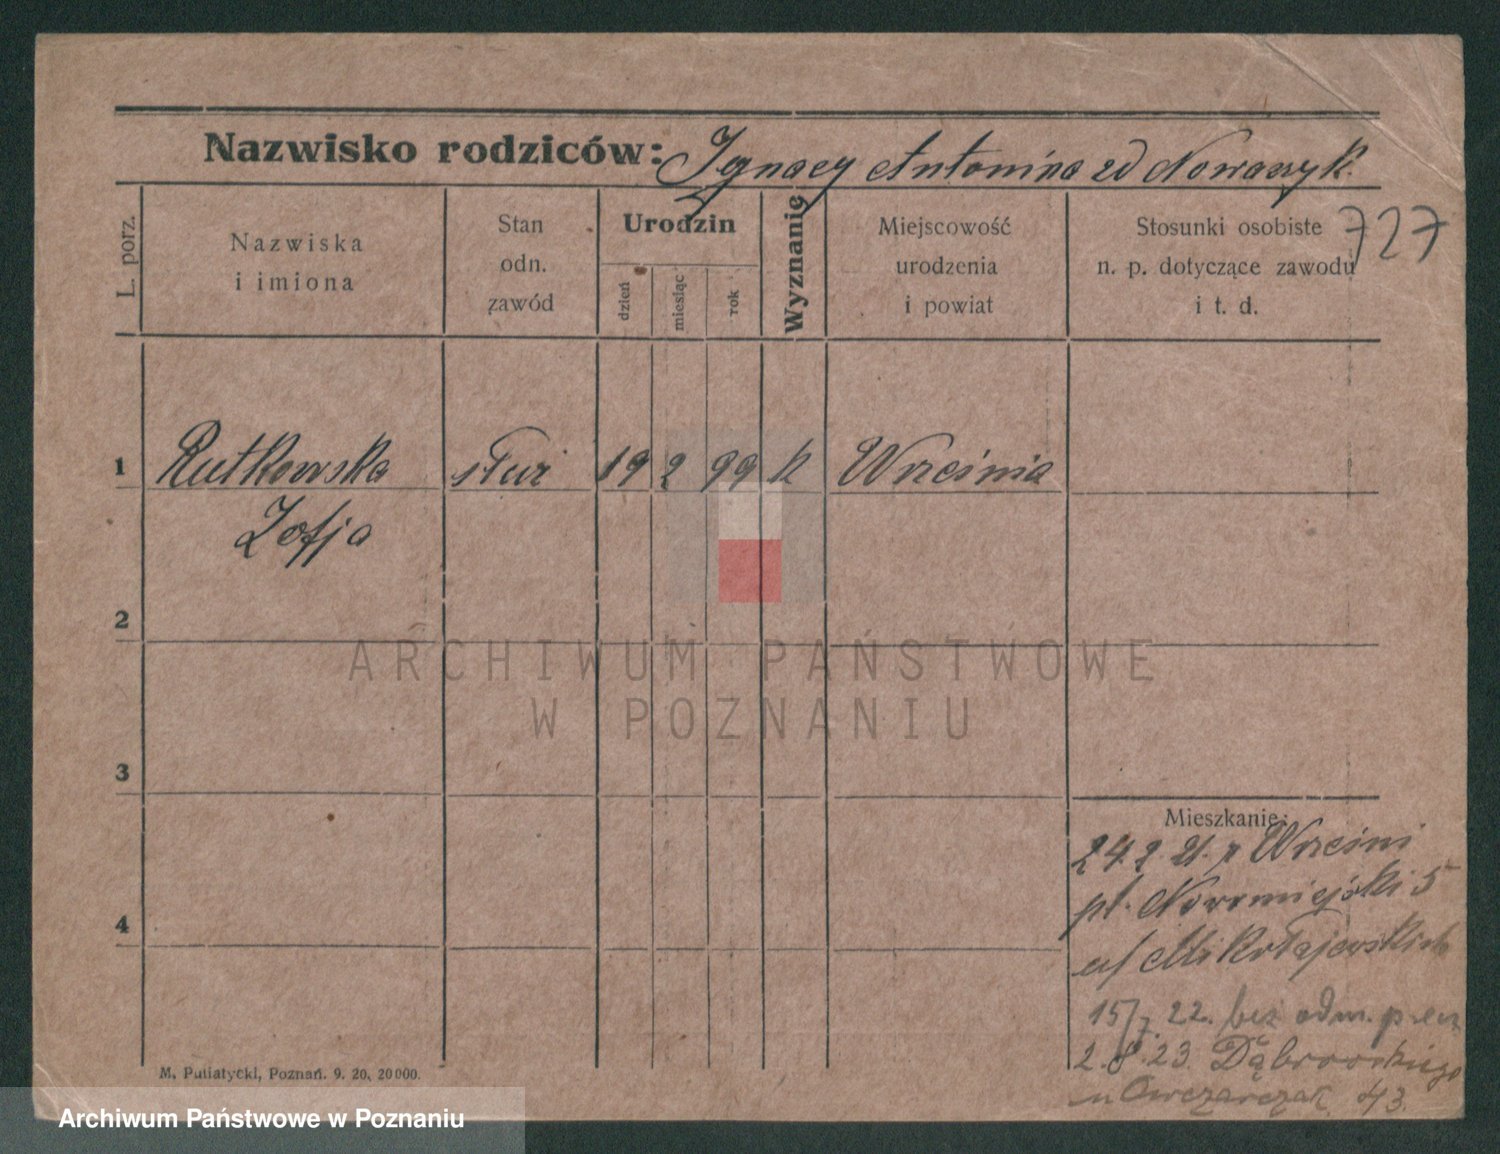 Nazwisko rodziców: Ignacy Antonina zd Nowaczyk
727
L. porz.
Nazwiska
i imiona
Stan
odn.
zawód
Urodzin
dzień
miesiąc
rok
Wyznanie
Miejscowość
urodzenia
i powiat
Stosunki osobiste
n. p. dotyczące zawodu
i t. d.
1 Rutkowska służ 19 2 99 k Września
Zofja
2
3
4
Mieszkanie:
24 2 21. z Wrześni
pl. Nowomiejski 5
u/ Mikołajewskich
15/7. 22. bez odm. przez
2.8.23. Dąbrowskiego
u Owczarczak 43.
M. Putiatycki, Poznań. 9. 20, 20000.
ARCHIWUM PAŃSTWOWE
W POZNANIU
Archiwum Państwowe w Poznaniu